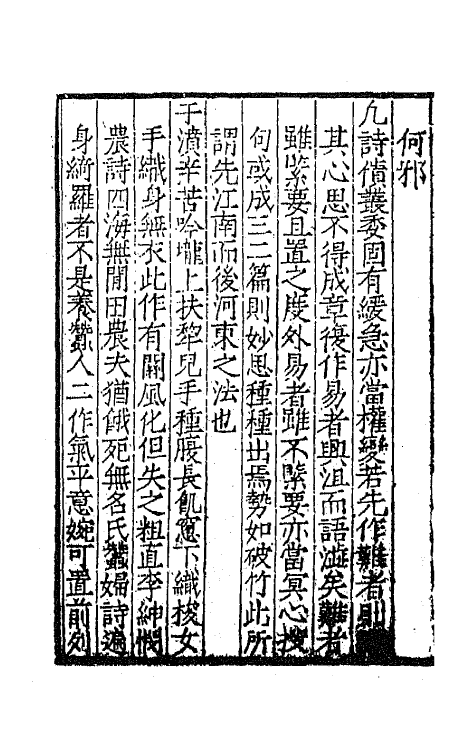 何邪
凡詩債叢委固有緩急亦當權變若先作難者則
其心思不得成章復作易者興沮而語澁矣難者
雖緊要且置之度外易者雖不緊要亦當冥心搜
句或成三二篇則妙思種種出焉勢如破竹此所
謂先江南而後河東之法也
于濆辛苦吟壠上扶犂兒手種腹長飢窻下織梭女
手織身無衣此作有關風化但失之粗直李紳憫
農詩四海無閒田農夫猶餓死無名氏蠶婦詩遍
身綺羅者不是養蠶人二作氣平意婉可置前列